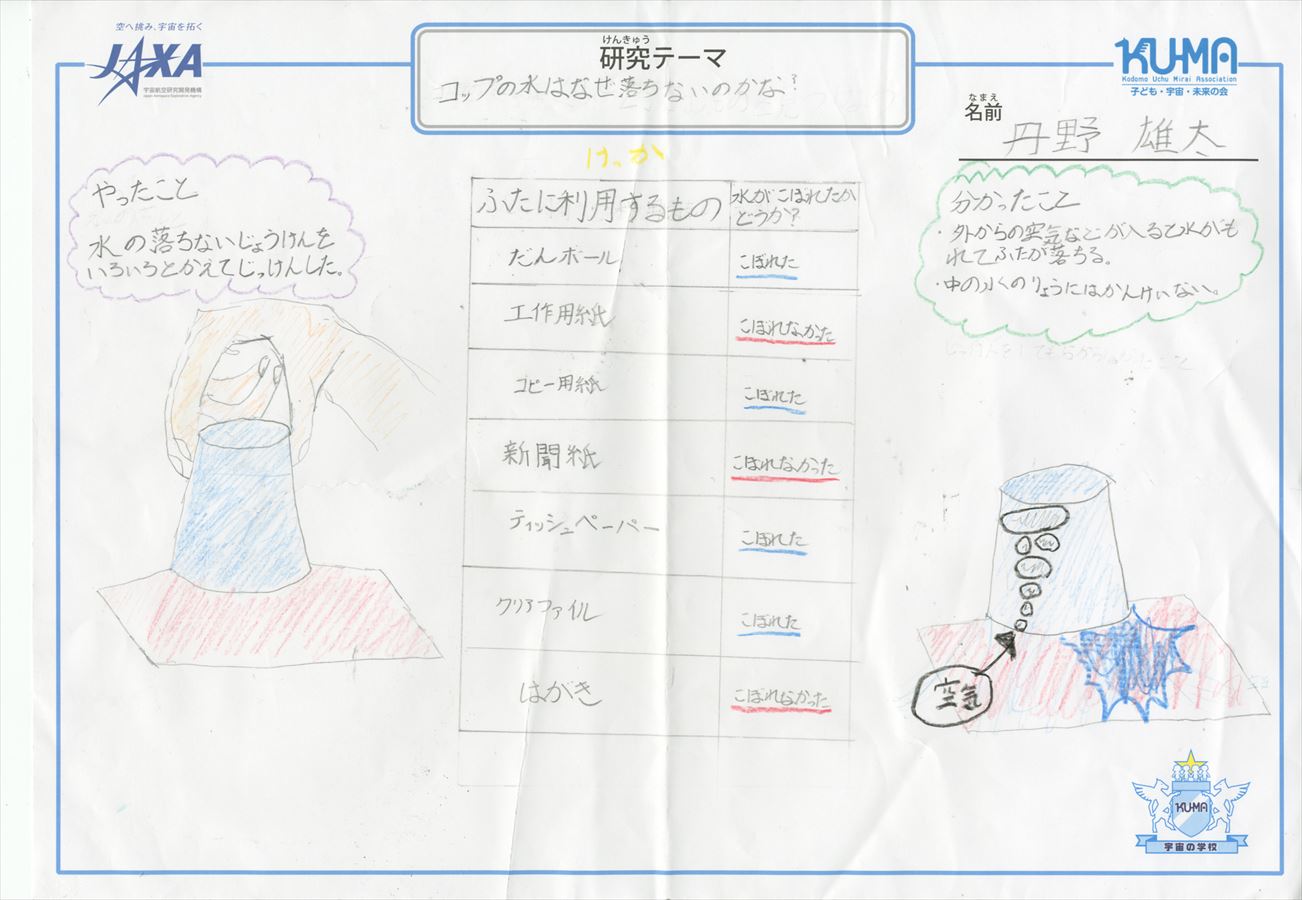 空へ挑み、宇宙を拓く
JAXA
宇宙航空研究開発機構
Japan Aerospace Exploration Agency
けんきゅう
研究テーマ
コップの水はなぜ落ちないのかな?
KU-MA
Kodomo Uchu Mirai Association
子ども・宇宙・未来の会
なまえ
名前
丹野 雄太
やったこと
水の落ちないじょうけんを
いろいろとかえてじっけんした。
けっか
ふたに利用するもの 水がこぼれたか
どうか?
だんボール こぼれた
工作用紙 こぼれなかった
コピー用紙 こぼれた
新聞紙 こぼれなかった
ティッシュペーパー こぼれた
クリアファイル こぼれた
はがき こぼれなかった
分かったこと
・外からの空気などが入ると水がも
れてふたが落ちる。
・中の水のりょうにはかんけいない。
空気
KU-MA
宇宙の学校